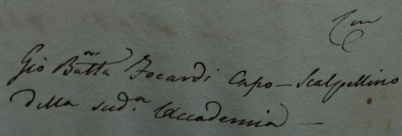 Gio Batta Focardi Capo-Scalpellino
della sud.a Accademia —